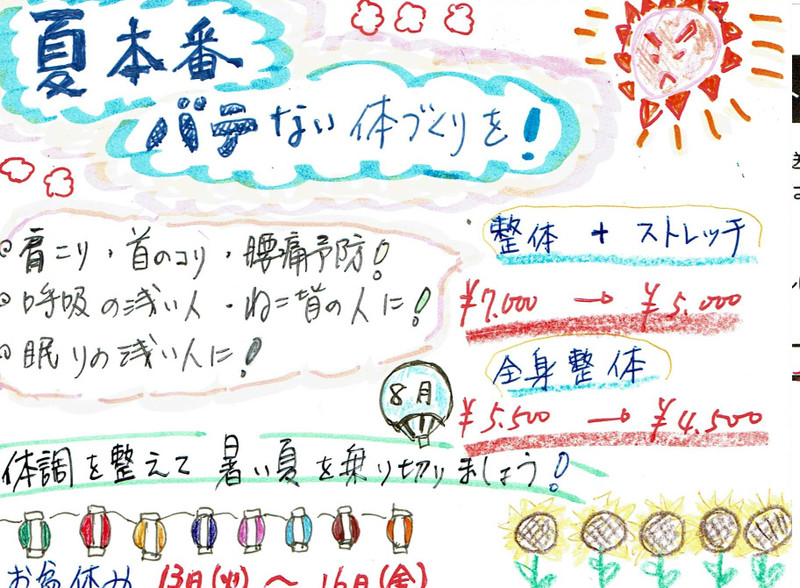 夏本番
バテない体づくりを!
肩こり・首のコリ・腰痛予防!
呼吸の浅い人・ねこ首の人に!
眠りの浅い人に!
整体 + ストレッチ
¥7.000 → ¥5.000
全身整体
¥5.500 → ¥4.500
8月
体調を整えて暑い夏を乗り切りましょう!
お盆休み 13日(火)～16日(金)